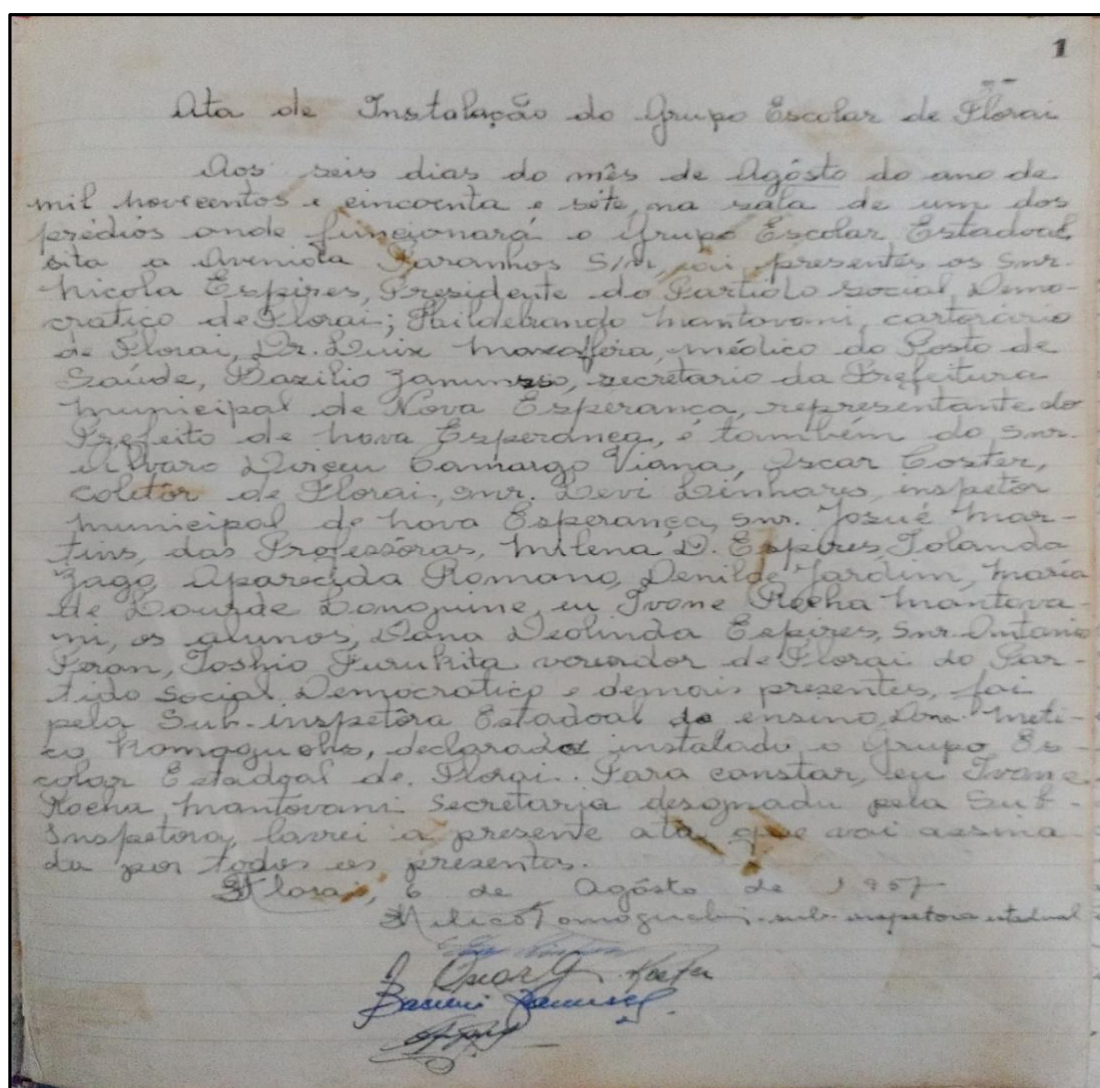 1
Ata de Instalação do Grupo Escolar de Florai
Aos seis dias do mês de Agósto do ano de
mil novecentos e cincoenta e sete, na sala de um dos
prédios onde funcionará o Grupo Escolar Estadoal,
sita a Avenida Paranhos S/n, ai presentes os Snr.
Nicola Espires, Presidente do Partido Social Demo-
cratico de Florai; Hildebrando Mantovani, cartorário
de Florai, Dr. Luix médico do Posto de
Saúde, Bazilio secretario da Prefeitura
Municipal de Nova Esperança, representante do
Prefeito de Nova Esperança, é também do Snr.
Alvaro Dirceu Camargo Viana, Oscar Coster,
colétor de Florai, snr. Levi Linhares, inspetôr
municipal de Nova Esperança, snr. Josué Mar-
tins, das Professôras, Milena D. Espires, Iolanda
Zago, Aparecida Romano, Denilde Jardim, Maria
de Lourde Longuine, eu Ivone Rocha Mantova-
ni, os alunos, Dona Deolinda Espires, Snr. Antonio
Peron, Toshio Furukita vereador de Florai do Par-
tido Social Democratico e demais presentes, foi
pela Sub-inspetôra Estadoal do ensino, Dona
declarado instalado o Grupo Es-
colar Estadoal de Florai. Para constar, eu Ivone
Rocha Mantovani Secretaria designada pela Sub-
Inspetora, lavrei a presente ata que vai assina-
da por todos os presentes.
Florai, 6 de Agósto de 1957
sub-inspetora estadual
Oscar